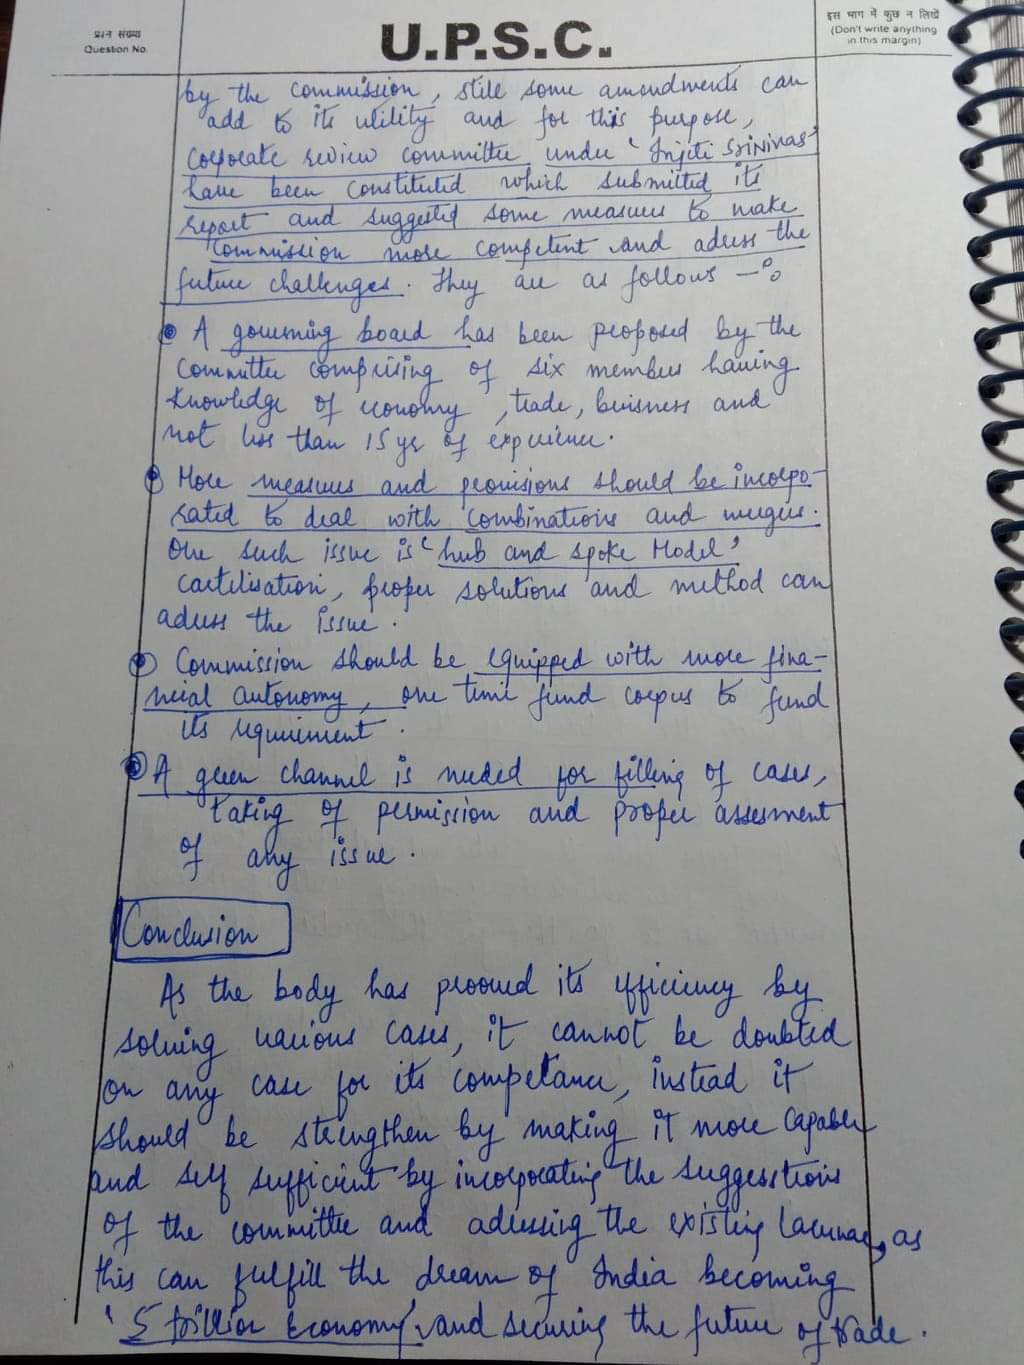 प्रश्न संख्या
Question No.
U.P.S.C.
इस भाग में कुछ न लिखें
(Don't write anything
in this margin)
by the commission, still some amendments can
add to its utility and for this purpose,
corporate review committee under 'Injiti Srinivas'
have been constituted which submitted its
report and suggested some measures to make
commission more competent and adress the
future challenges. They are as follows -:
• A governing board has been proposed by the
committee comprising of six members having
knowledge of economy, trade, buisness and
not less than 15 yr of experience.
• More measures and provisions should be incorpo-
rated to deal with combinations and mergers.
One such issue is 'hub and spoke Model'
cartelisation, proper solutions and method can
adress the issue.
• Commission should be equipped with more fina-
ncial autonomy, one time fund corpus to fund
its requirement.
• A green channel is needed for filling of cases,
taking of permission and proper assesment
of any issue.
Conclusion
As the body has prooved its efficiency by
solving various cases, it cannot be doubted
on any case for its competance, instead it
should be strengthen by making it more capable
and self sufficient by incorporating the suggesstions
of the committee and adressing the existing lacunae, as
this can fulfill the dream of India becoming
'5 trillion economy' and securing the future of trade.